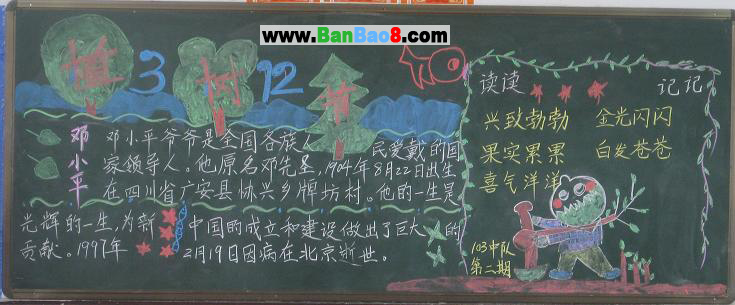 www.BanBao8.com
植 3 树 12 节
邓小平
邓小平爷爷是全国各族人民爱戴的国
家领导人。他原名邓先圣,1904年8月22日出生
在四川省广安县协兴乡牌坊村。他的一生是
光辉的一生,为新中国的成立和建设做出了巨大的
贡献。1997年2月19日因病在北京逝世。
读读 记记
兴致勃勃 金光闪闪
果实累累 白发苍苍
喜气洋洋
103中队
第二期